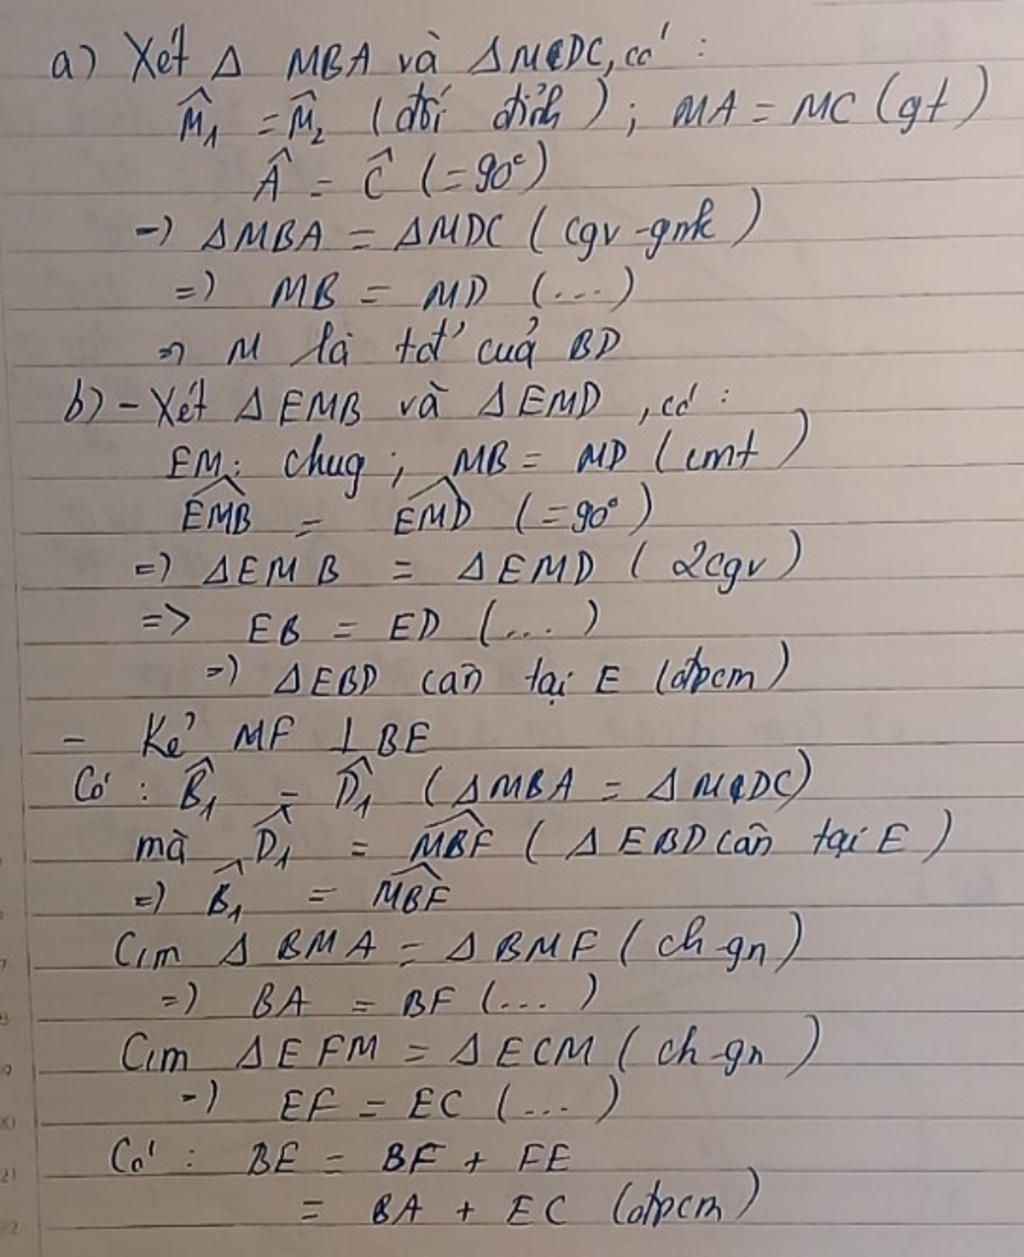 a) Xét Δ MBA và ΔMDC, có :
M̂₁ = M̂₂ (đối đỉnh) ; MA = MC (gt)
Â = Ĉ (= 90°)
=) ΔMBA = ΔMDC ( cgv - gnk )
=) MB = MD (...)
=) M là tđ' cuả BD
b) - Xét ΔEMB và ΔEMD , có :
EM : chug ; MB = MD ( cmt )
EMB̂ = EMD̂ (= 90°)
=) ΔEMB = ΔEMD ( 2cgv )
=> EB = ED (...)
=) ΔEBD cân tại E (đpcm)
- Kẻ MF ⊥ BE
Có : B̂₁ = D̂₁ (ΔMBA = ΔMDC)
mà D̂₁ = MBF̂ ( ΔEBD cân tại E )
=) B̂₁ = MBF̂
C₁m Δ BMA = Δ BMF ( ch - gn )
=) BA = BF (...)
C₁m ΔEFM = ΔECM ( ch - gn )
=) EF = EC (...)
Có : BE = BF + FE
= BA + EC (đpcm)
21